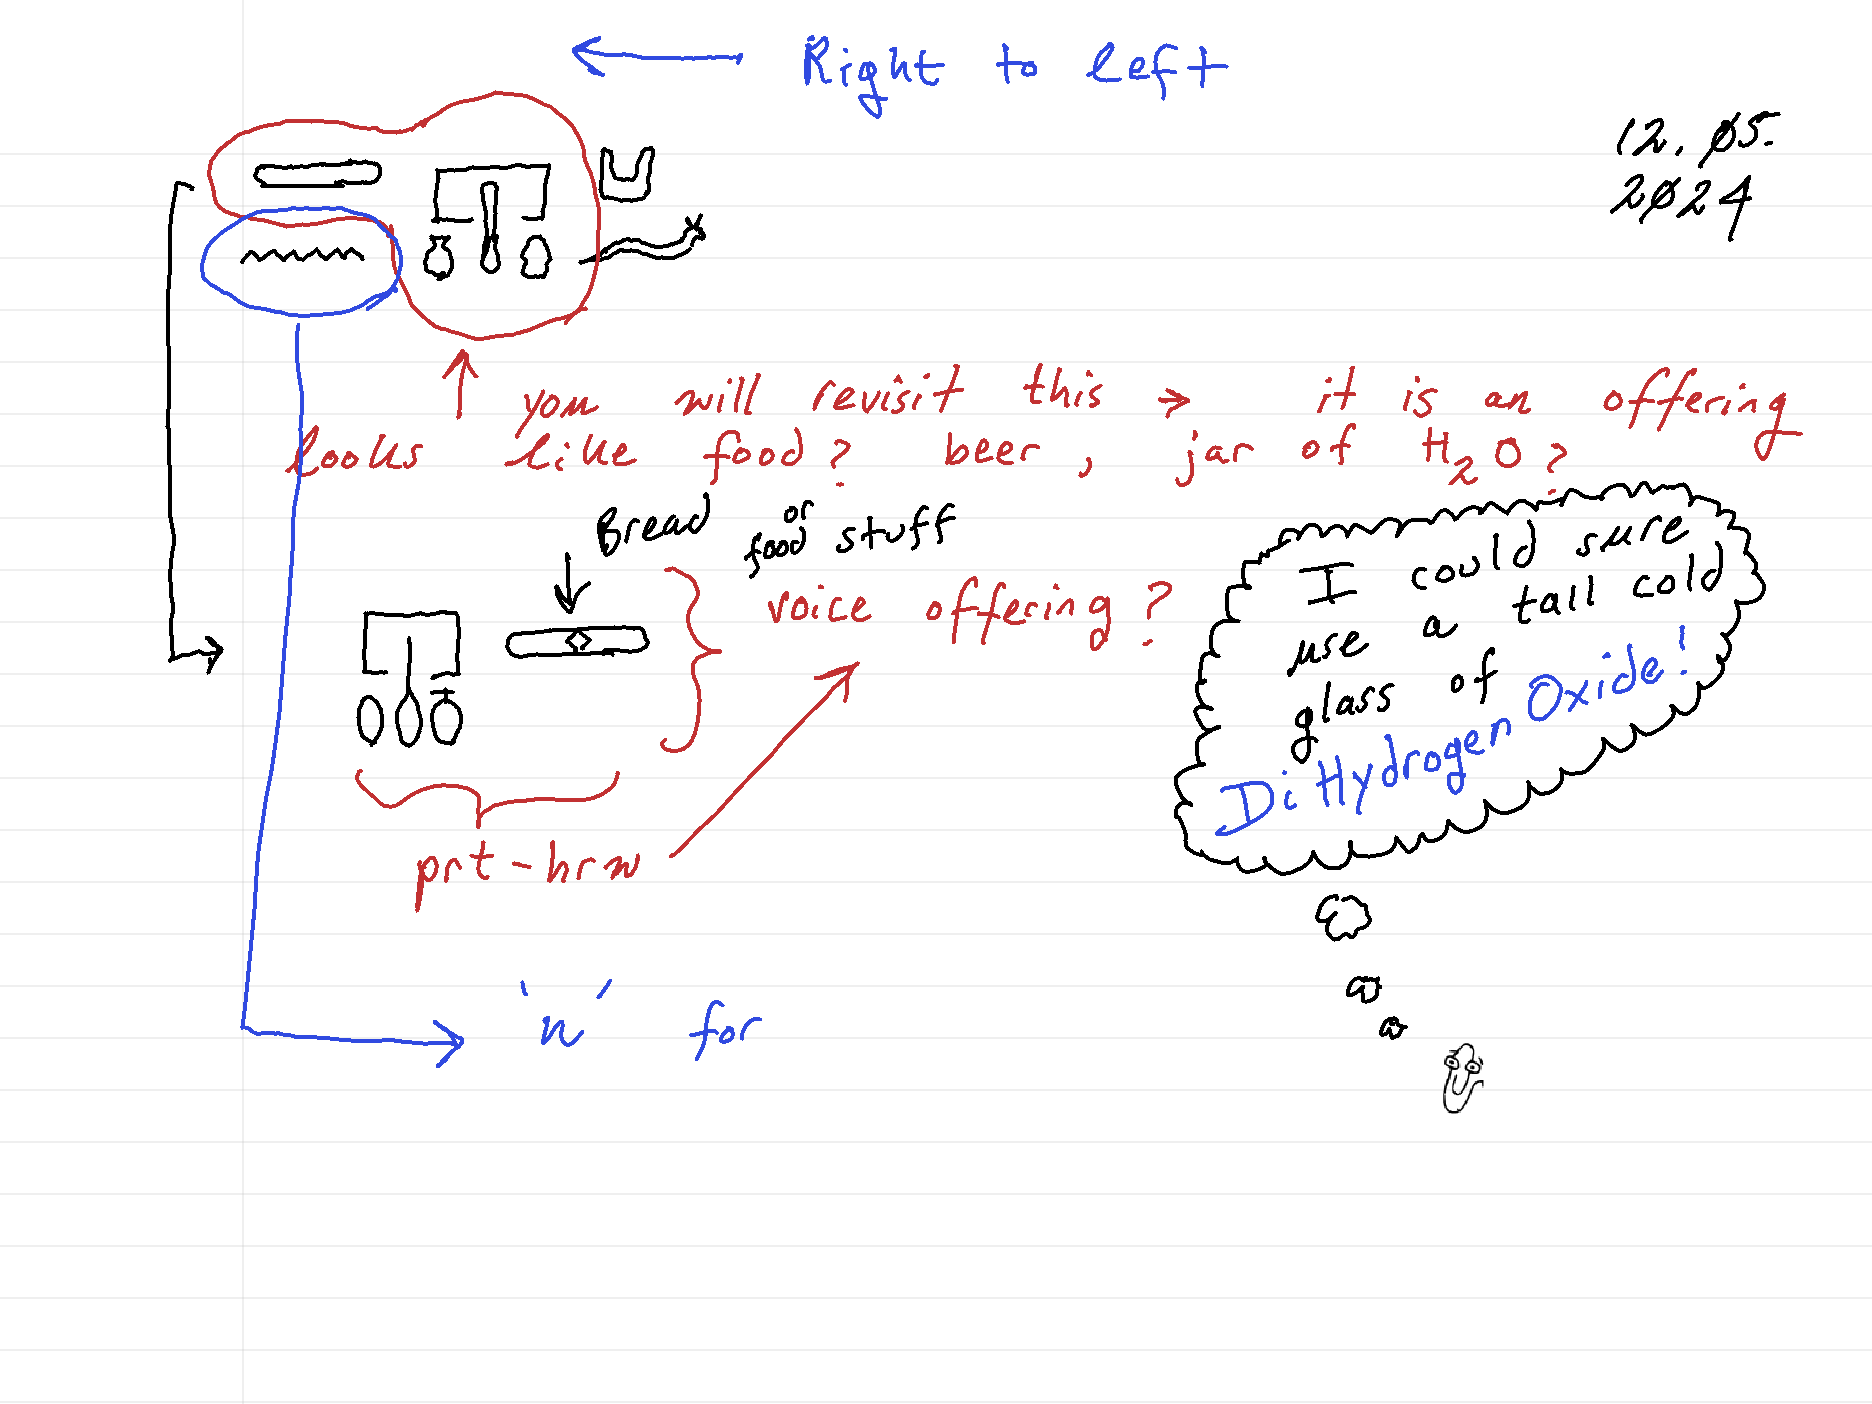 Right to left
12. 05.
2024
you will revisit this → it is an offering
looks like food? beer, jar of H₂O?
Bread or food stuff
voice offering?
prt-hrw
'n' for
I could sure
use a tall cold
glass of
DiHydrogen Oxide!